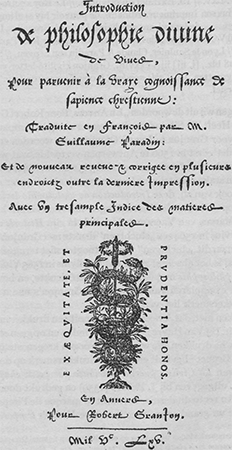 Introduction
de philosophie diuine
de Viues,
Pour paruenir à la vraye cognoissance de
sapience chrestienne:
Traduite en François par M.
Guillaume Paradin:
Et de nouveau reueue & corrigee en plusieurs
endroictz outre la derniere Impression.
Auec vn tresample Indice des matieres
principales.
EX ÆQVITATE, ET
PRVDENTIA HONOS.
En Anvers,
Pour Robert Granjon.
Mil Vc. Lxv.